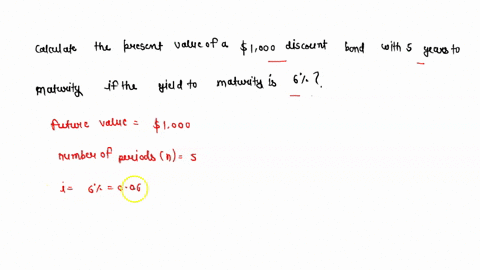 Calculate the present value of a $1,000 discount bond with 5 years to
maturity if the yield to maturity is 6%?
future value = $1,000
number of periods (n) = 5
i = 6% = 0.06